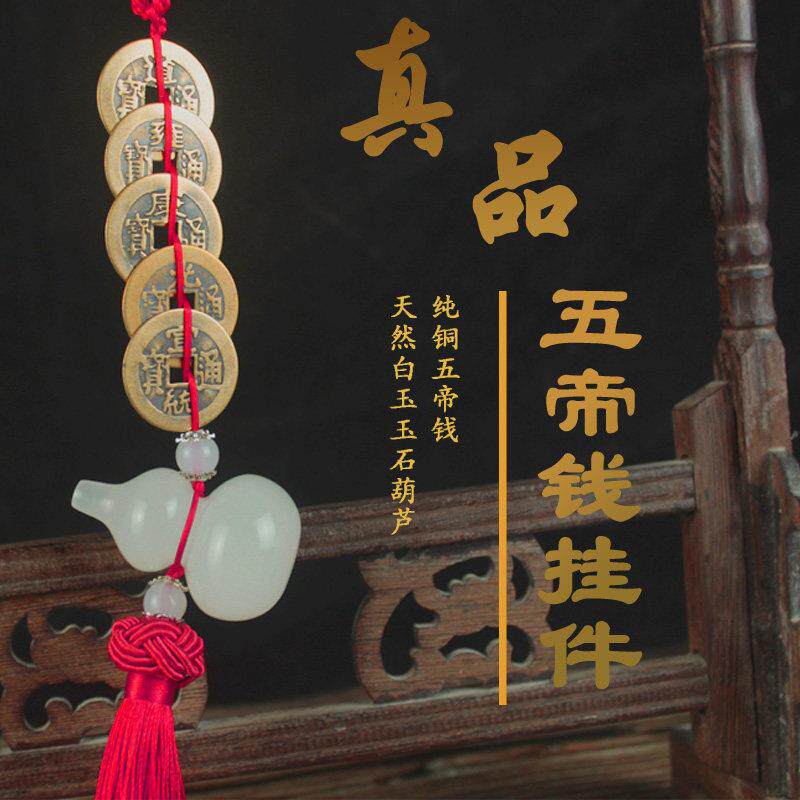 真品
五帝钱挂件
纯铜五帝钱
天然白玉玉石葫芦
道通寶
雍通寶
康通寶
光通寶
宣統通寶